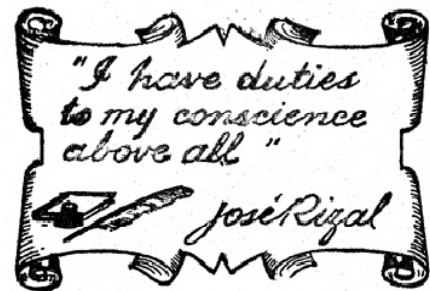 "I have duties
to my conscience
above all"
José Rizal